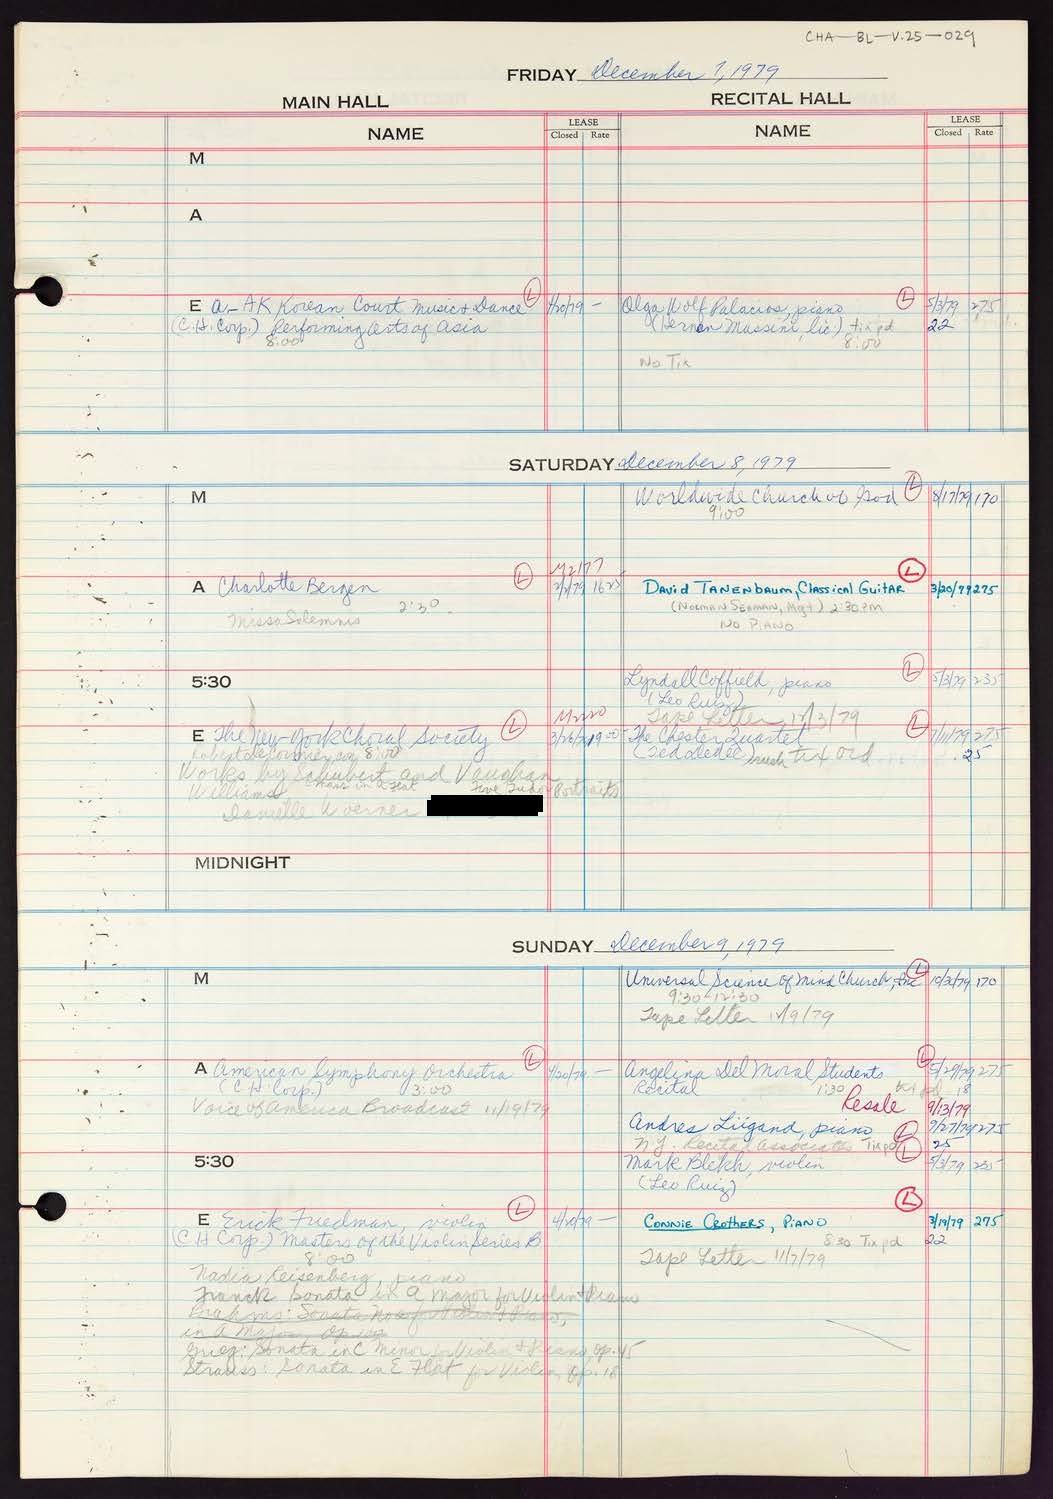 CHA-BL-V.25-029
FRIDAY December 7, 1979
MAIN HALL
RECITAL HALL
NAME
LEASE
Closed Rate
NAME
LEASE
Closed Rate
M
A
E A-AK Korean Court Music & Dance L 4/20/79 -
(C.H. Corp.) Performing Arts of Asia
8:00
Olga Wolf Palacios, piano L 5/3/79 275
(Hernan Massini, lic.) tix pd 22
8:00
No Tix
SATURDAY December 8, 1979
M
Worldwide Church of God L 8/17/79 170
9:00
M2177
A Charlotte Bergen L 2/2/79 1625
2:30
Missa Solemnis
David Tanenbaum, Classical Guitar L 3/20/79 275
(Norman Seaman, Mgt) 2:30 PM
No Piano
5:30
Lyndall Coffield, piano L 5/3/79 235
(Leo Ruiz)
Tape Letter 12/3/79
M2220
E The New York Choral Society L 3/26/79 1900
Robert De Cormier 8:00
Works by Schubert and Vaughan
Williams Mass in A flat Five Tudor Portraits
Danielle Woerner
The Chester Quartet L 7/11/79 275
tix ord 25
MIDNIGHT
SUNDAY December 9, 1979
M
Universal Science of Mind Church, Inc L 10/3/79 170
9:30-12:30
Tape Letter 11/9/79
A American Symphony Orchestra L 4/20/79 -
(C H Corp.) 3:00
Voice of America Broadcast 11/19/79
Angelina Del Moral Students L 5/29/79 275
Recital 1:30 tix pd 18
Resale 9/13/79
Andres Liigand, piano L 9/27/79 275
N.Y. Recital Associates Tix pd 25
5:30
Mark Blekh, violin L 5/3/79 235
(Leo Ruiz)
E Erick Friedman, violin L 4/20/79 -
(C H Corp.) Masters of the Violin Series B
8:00
Nadia Reisenberg, piano
Franck Sonata in A Major for Violin & Piano
Brahms: Sonata No 2 for Violin & Piano,
in A Major, Op. 100
Grieg: Sonata in C Minor for Violin & Piano, Op. 45
Strauss: Sonata in E Flat for Violin, Op. 18
Connie Crothers, Piano L 3/19/79 275
8:30 Tix pd 22
Tape Letter 11/7/79